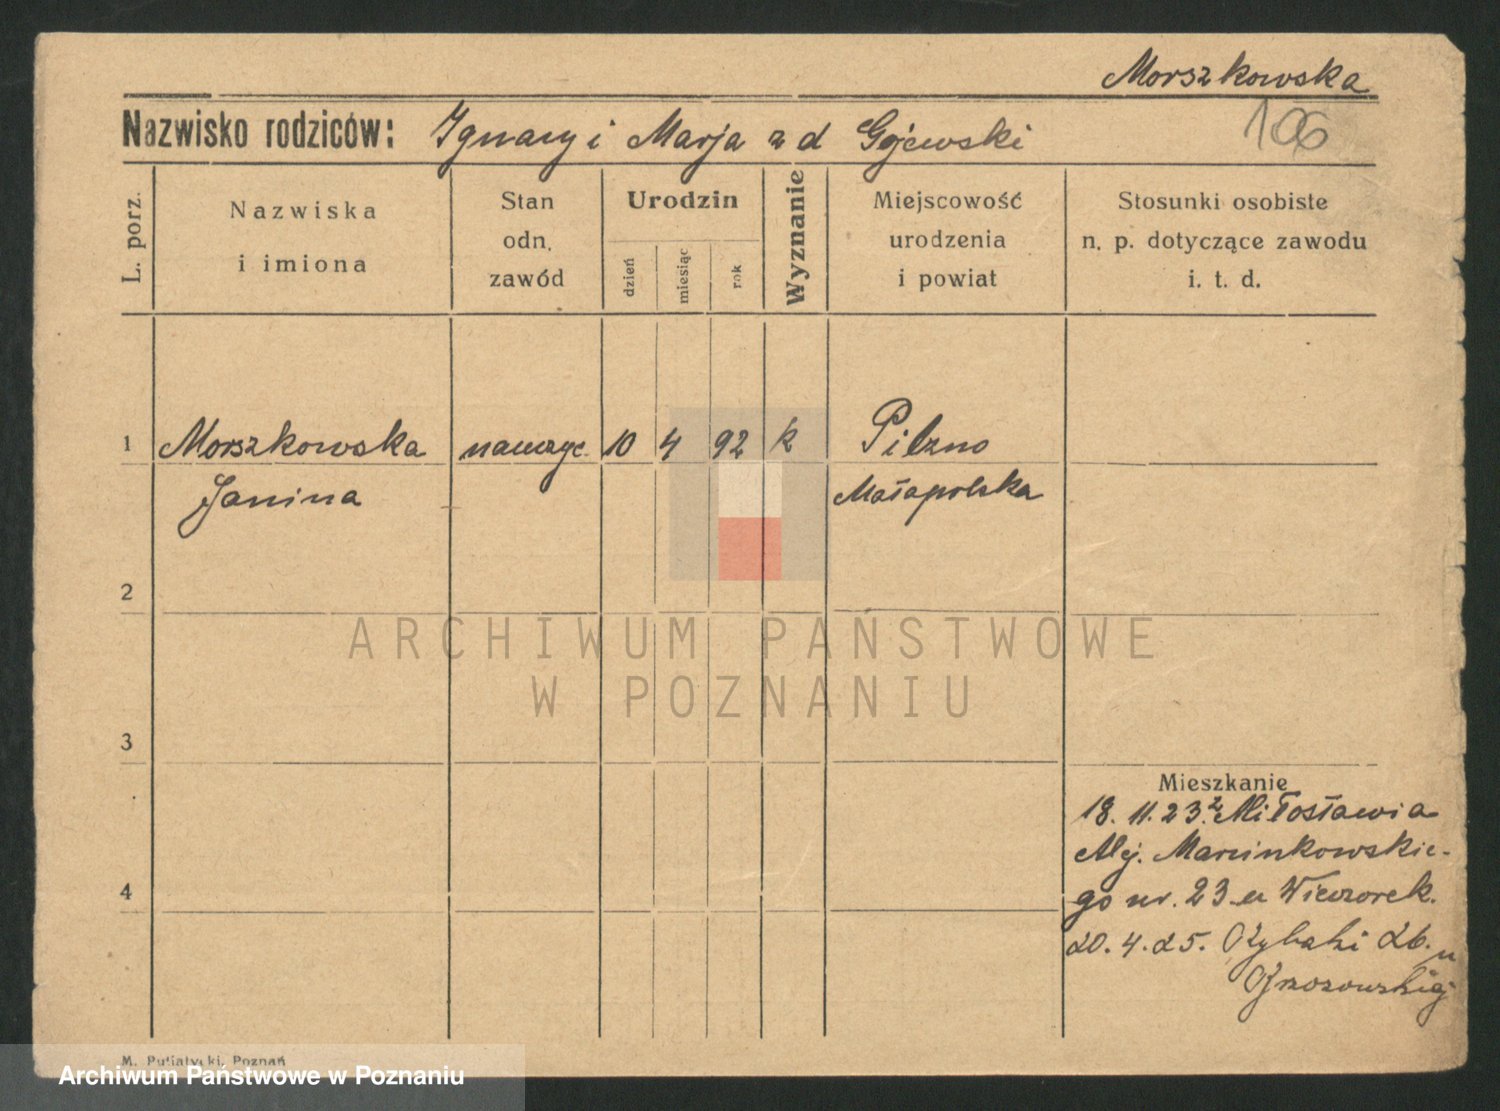 Morszkowska
106
Nazwisko rodziców: Ignacy i Marja z d Gojewski
L. porz.
Nazwiska
i imiona
Stan
odn.
zawód
Urodzin
dzień
miesiąc
rok
Wyznanie
Miejscowość
urodzenia
i powiat
Stosunki osobiste
n. p. dotyczące zawodu
i. t. d.
1 Morszkowska nauczyc. 10 4 92 k Pilzno
Janina Małapolska
2
3
4
Mieszkanie
18. 11. 23. z Miłosławia
Alej. Marcinkowskie-
go nr. 23 u Wieczorek.
20. 4. 25. Rybaki 26. u
Brzozowskiej
M. Putiatycki, Poznań
ARCHIWUM PAŃSTWOWE
W POZNANIU
Archiwum Państwowe w Poznaniu